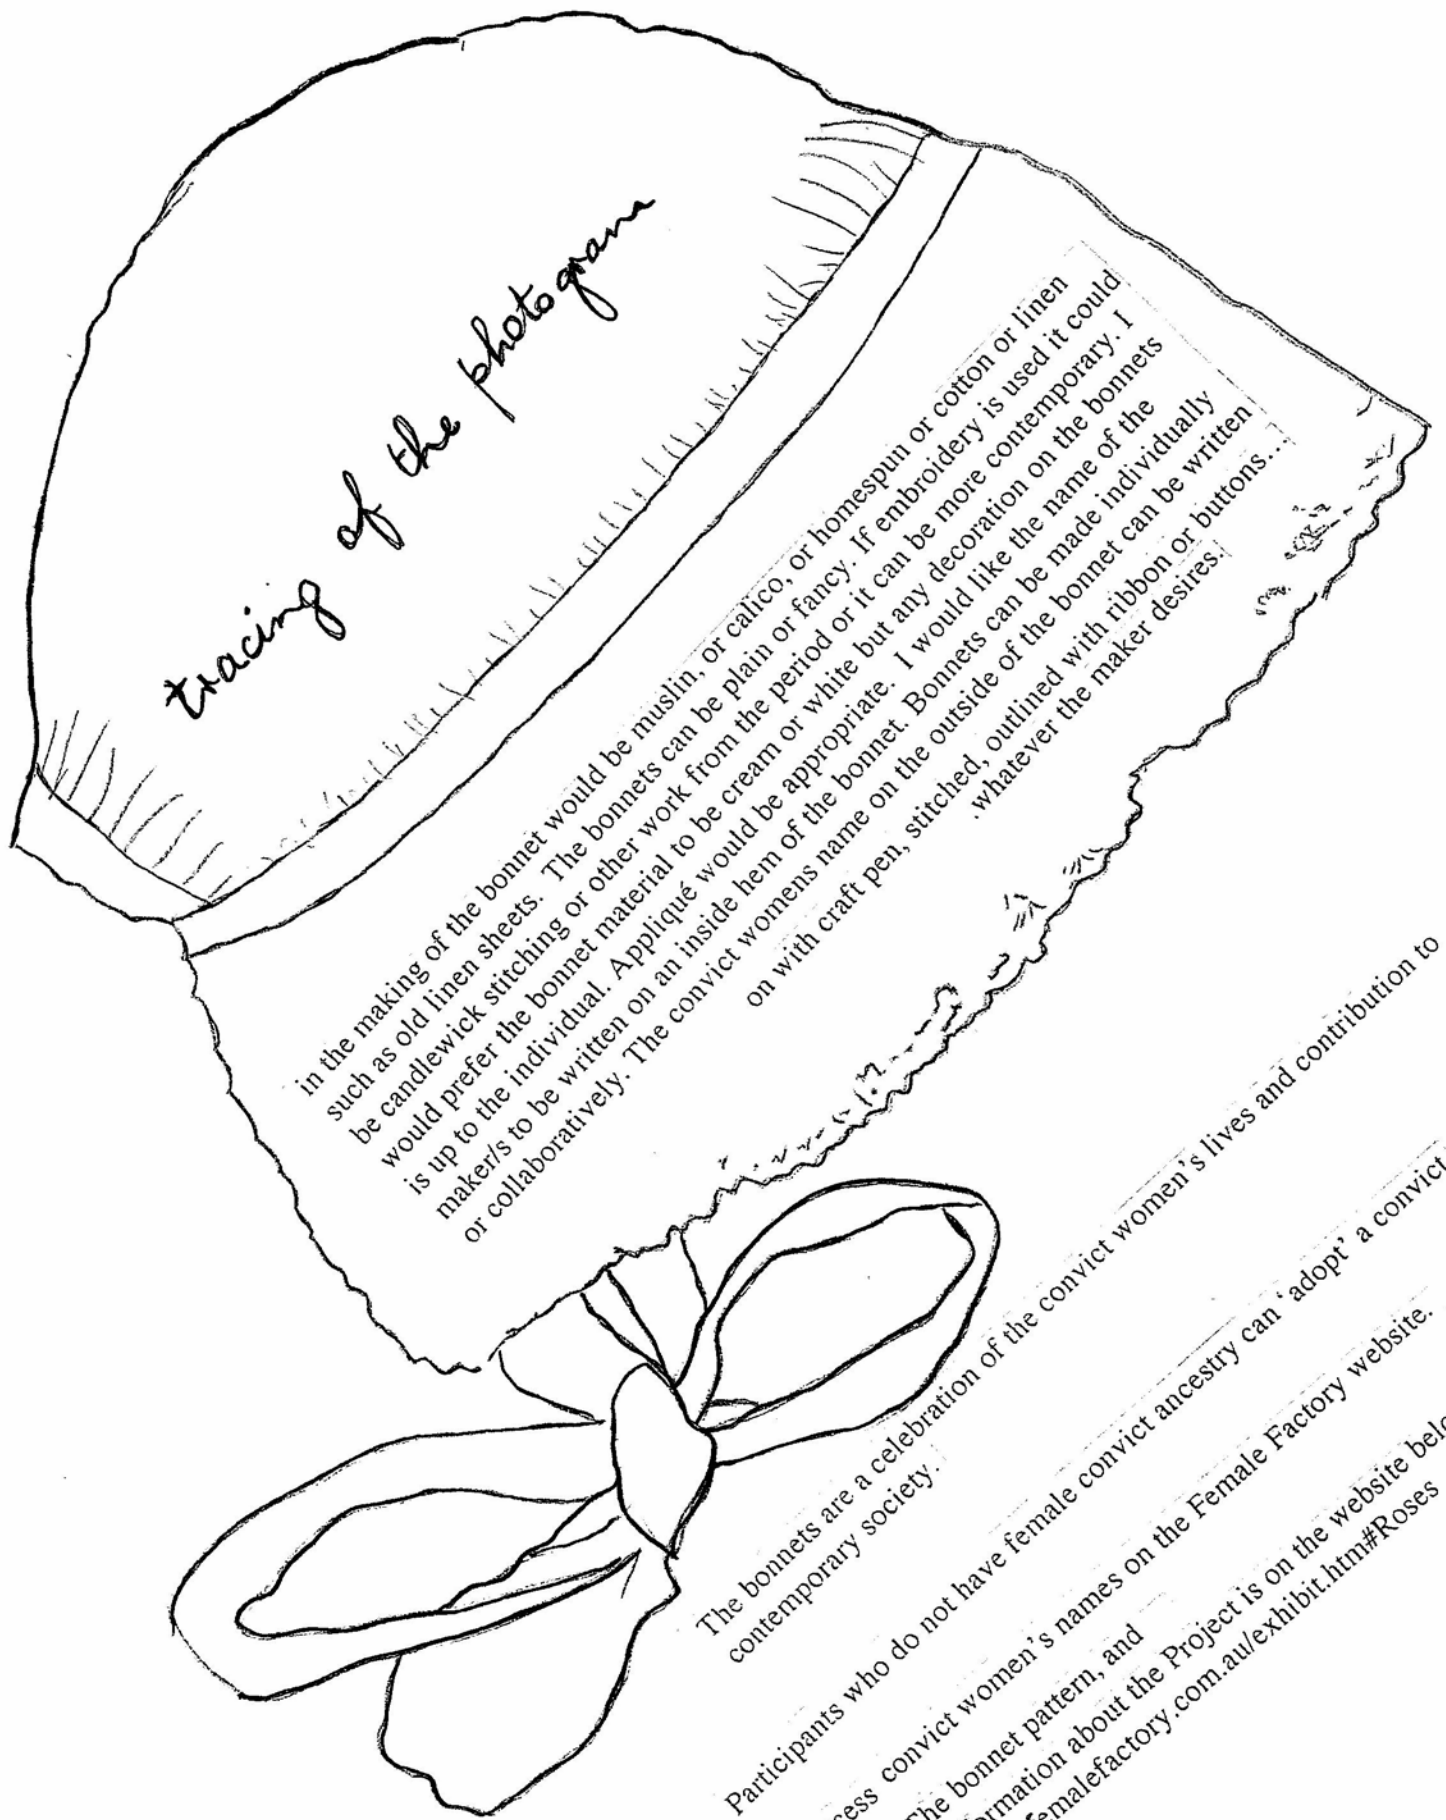 tracing of the photogram
in the making of the bonnet would be muslin, or calico, or homespun or cotton or linen
such as old linen sheets. The bonnets can be plain or fancy. If embroidery is used it could
be candlewick stitching or other work from the period or it can be more contemporary. I
would prefer the bonnet material to be cream or white but any decoration on the bonnets
is up to the individual. Appliqué would be appropriate. I would like the name of the
maker/s to be written on an inside hem of the bonnet. Bonnets can be made individually
or collaboratively. The convict womens name on the outside of the bonnet can be written
on with craft pen, stitched, outlined with ribbon or buttons...
.whatever the maker desires.
The bonnets are a celebration of the convict women's lives and contribution to
contemporary society.
Participants who do not have female convict ancestry can 'adopt' a convict
convict women's names on the Female Factory website.
bonnet pattern, and
about the Project is on the website
femalefactory.com.au/exhibit.htm#Roses